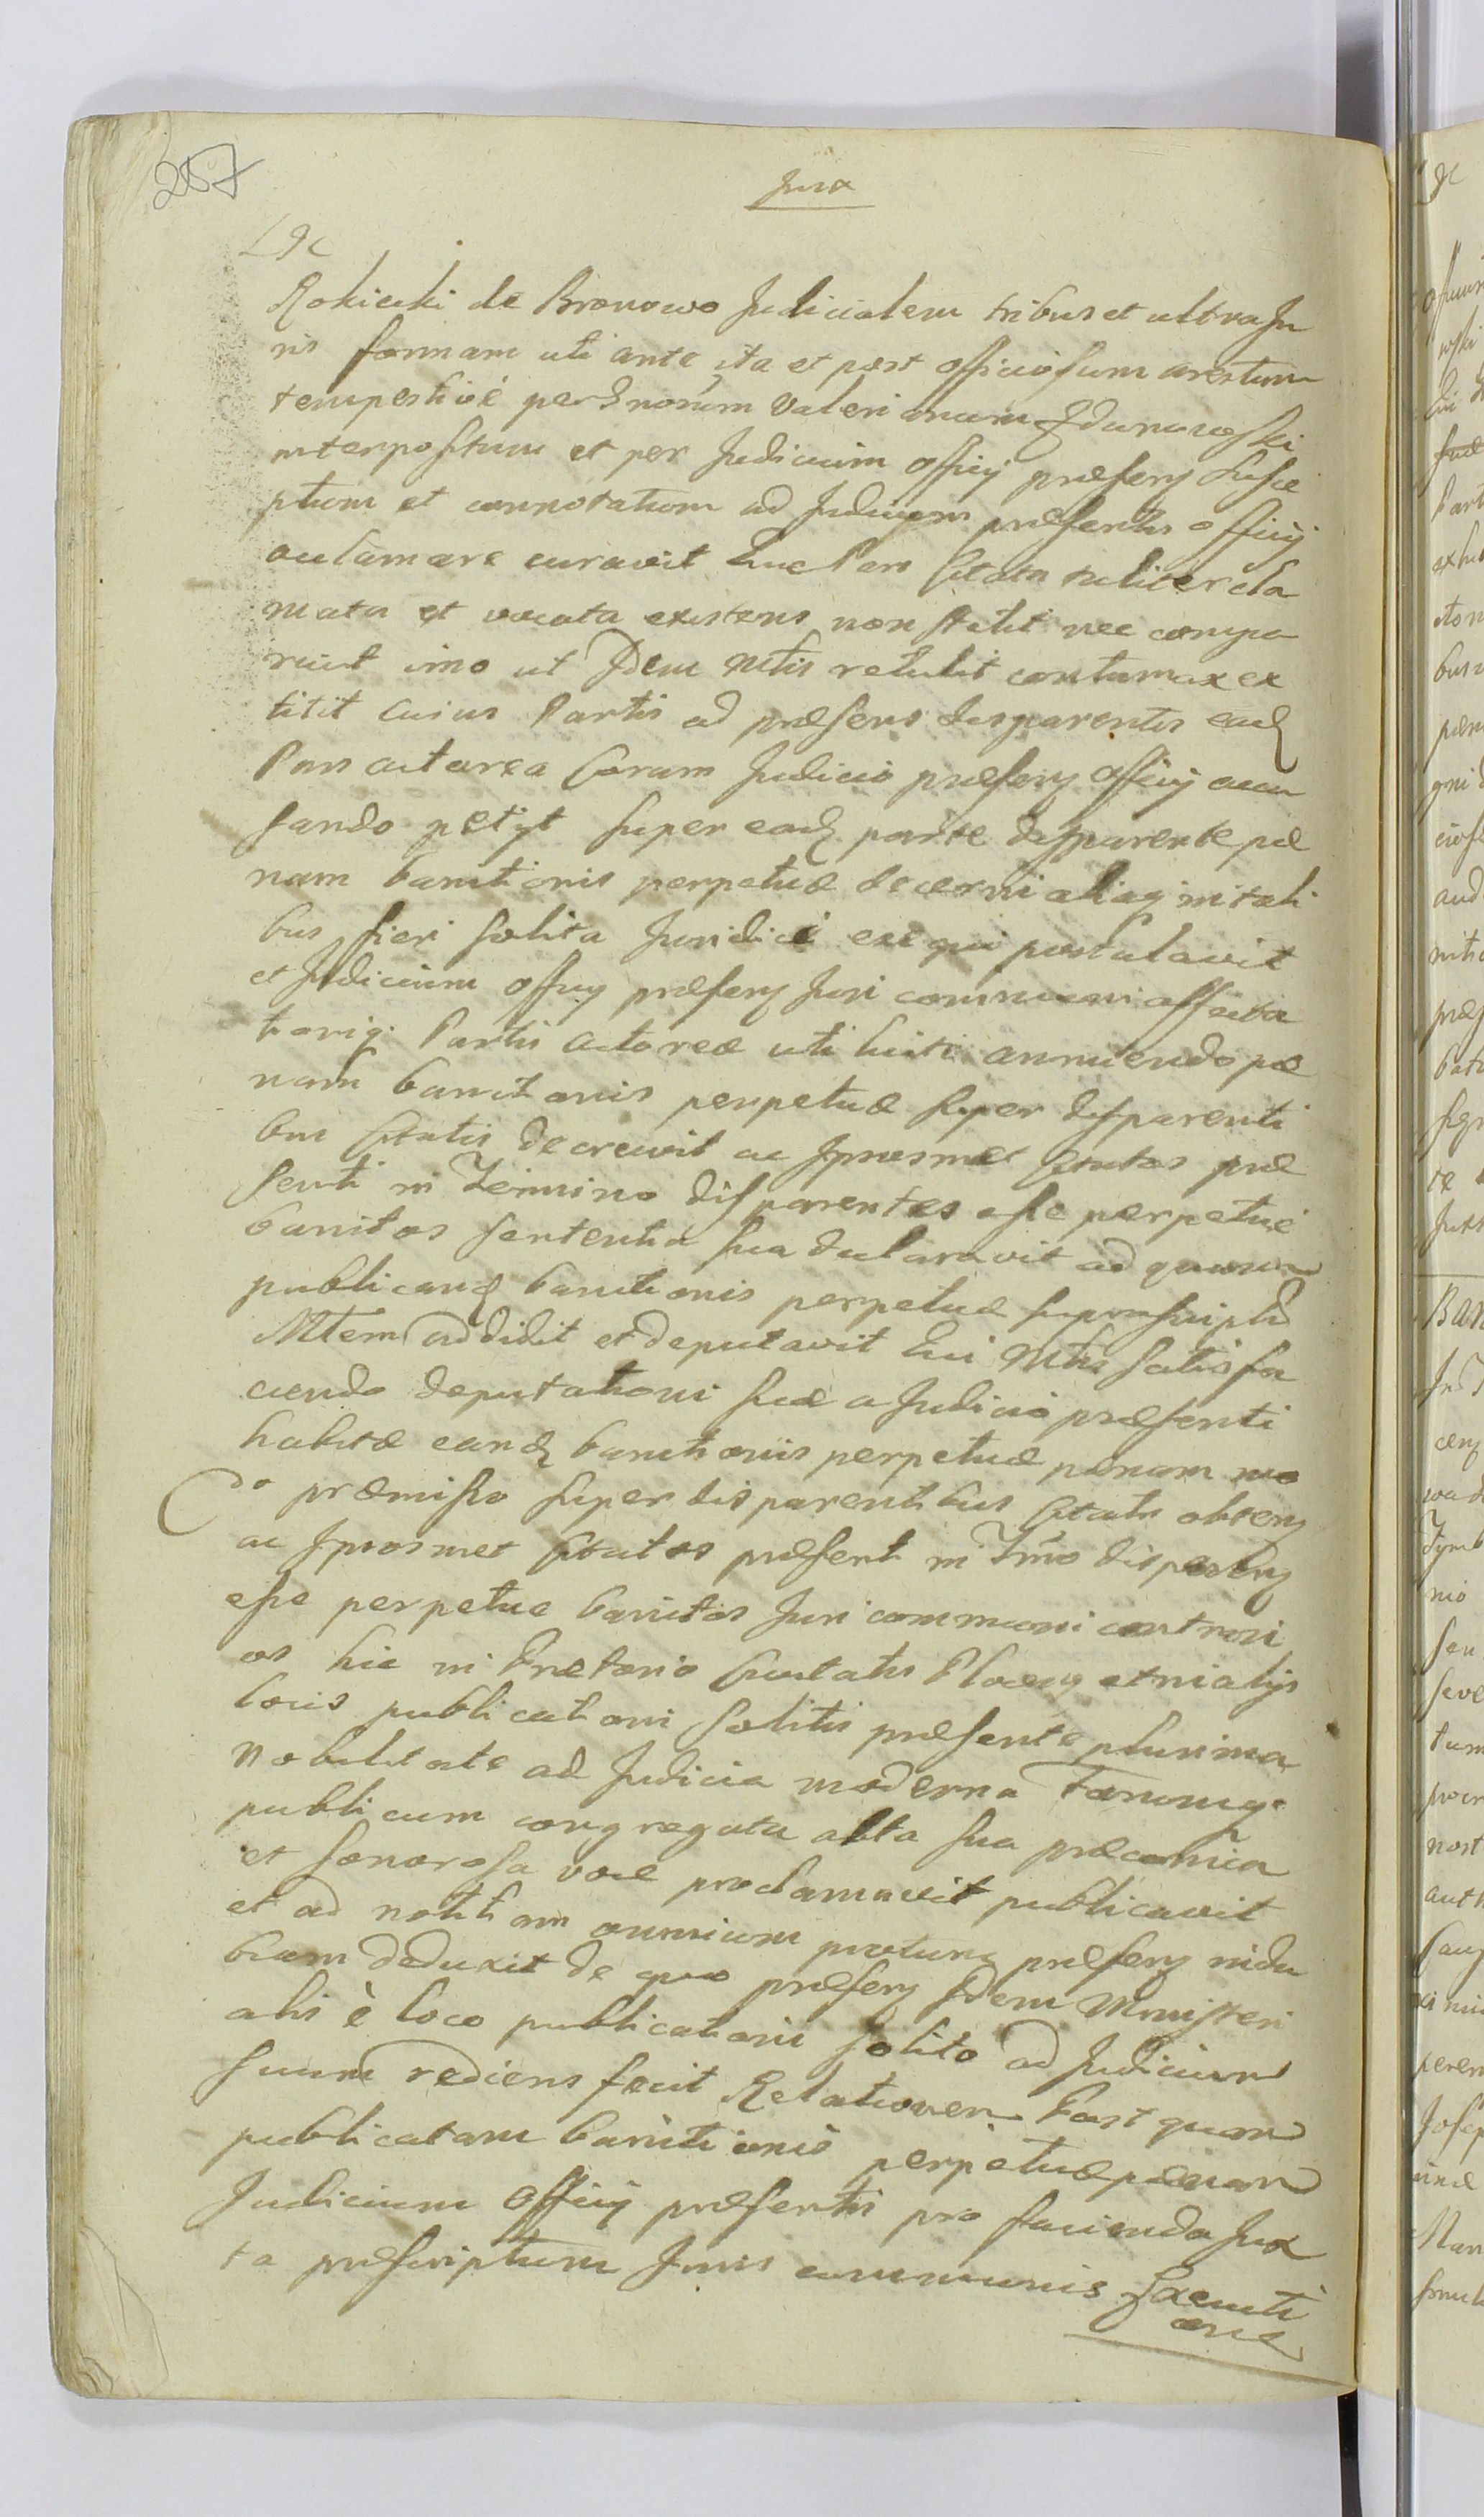 257
Jux
Rokicki de Bronowo Judicialem tribus et ultra Ju
ris formam uti ante ita et post officiosum arestum
tempestivè per Gnosum Valerianum Zdunowski
interpositum et per Judicium officij præsens susce
ptum et connotatum ad Judicium præsentis officij
acclamare curavit hæc Pars Citata taliter cla
mata et vocata existens non stetit nec compa
ruit imo ut Idem Mtis retulit contumax ex
titit cuius Partis ad præsens disparentis ead
Pars actorea Coram Judicio præsens officij accu
sando petijt super ead parte disparente pæ
nam banitionis perpetuæ decerni aliaq in tali
bus fieri solita Juridicè exequi postulavit
et Judicium officij præsens Juri communi affecta
tioniq: Partis actoreæ uti annuendo pæ
nam banitionis perpetuæ super disparenti
bus Citatis decrevit ac ipsosmet Citatos præ
senti in Termino disparentes esse perpetuè
banitos sententia sua declaravit ad quam
publicand banitionis perpetuæ suprascriptæ
Mtem addidit et deputavit Qui Mtis satisfa
ciendo deputationi suæ a Judicio præsenti
habitæ eand banitionis perpetuæ pænam mo
do præmisso super disparentibus Citatis obtens
ac Ipsosmet Citatos præsenti in Tmo disparens
esse perpetue banitos Juri communi contrari
os hic in Prætorio Civitatis Plocens et in alijs
locis publicationi solitis præsente plurima
Nobilitate ad Judicia moderna Forumq
publicum congregata alta sua præconica
et sonorosa voce proclamavit publicavit
et ad notitiam omnium protunc præsens indu
biam deduxit de quo præsens Idem Ministeri
alis è loco publicationi solito ad Judicium
suum rediens fecit Relationem Post quam
publicatam banitionis perpetuæ pænam
Judicium Officij præsentis pro facienda Jux
ta præscriptum Juris communis Executi
one